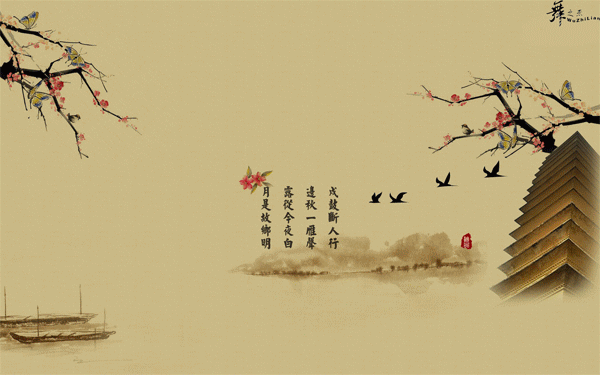 戍鼓斷人行
邊秋一雁聲
露從今夜白
月是故鄉明
舞之恋
WuZhiLian